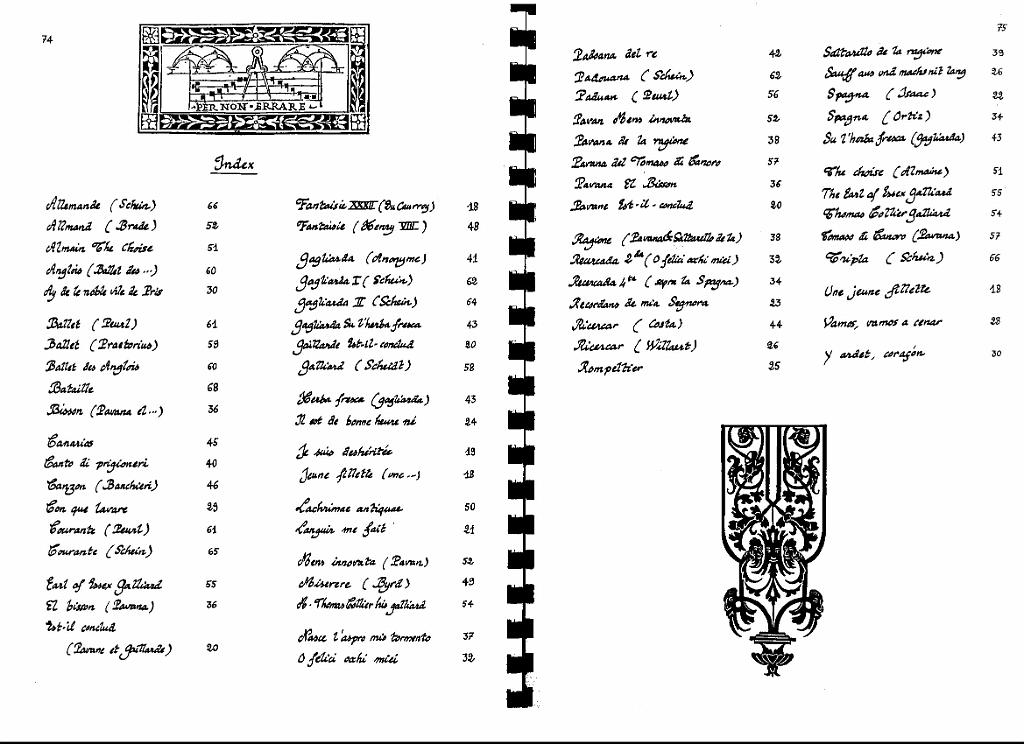 74
PER NON · ERRARE
Index
Allemande (Schein) 66
Allmand (Brade) 52
Almain The Choise 51
Anglois (Ballet des ...) 60
Ay de le noble vile de Pris 30
Ballet (Peurl) 61
Ballet (Praetorius) 59
Ballet des Anglois 60
Bataille 68
Bisson (Pavana el ...) 36
Canarios 45
Canto di prigioneri 40
Canzon (Banchieri) 46
Con que lavare 29
Courante (Peurl) 61
Courante (Schein) 65
Earl of Essex Galliard 55
El bisson (Pavana) 36
Est-il conclud
(Pavane et Gaillarde) 20
Fantaisie XXXII (Du Caurroy) 18
Fantaisie (Henry VIII) 48
Gagliarda (Anonyme) 41
Gagliarda I (Schein) 62
Gagliarda II (Schein) 64
Gagliarda Su l'herba fresca 43
Gaillarde Est-il-conclud 20
Galliard (Scheidt) 58
Herba fresca (gagliarda) 43
Il est de bonne heure né 24
Je suis deshéritée 19
Jeune fillette (une ...) 18
Lachrimae antiquae 50
Languir me fait 21
Mens innovata (Pavan) 52
Miserere (Byrd) 49
M. Thomas Collier his galliard 54
Nasce l'aspro mio tormento 37
O felici occhi miei 32
75
Padoana del re 42
Padouana (Schein) 62
Paduan (Peurl) 56
Pavan Mens innovata 52
Pavana de la ragione 38
Pavana del Tomaso di Canoro 57
Pavana El Bisson 36
Pavane Est-il-conclud 20
Ragione (Pavana & Saltarello de la) 38
Recercada 2da (O felici occhi miei) 32
Recercada 4ta (sopra la Spagna) 34
Recordans de mia Segnora 23
Ricercar (Costa) 44
Ricercar (Willaert) 26
Rompeltier 25
Saltarello de la ragione 39
Sauff aus und machs nit lang 26
Spagna (Isaac) 22
Spagna (Ortiz) 34
Su l'herba fresca (Gagliarda) 43
The choise (Almaine) 51
The Earl of Essex Galliard 55
Thomas Collier Galliard 54
Tomaso di Canoro (Pavana) 57
Tripla (Schein) 66
Une jeune fillette 18
Vamos, vamos a cenar 28
Y ardet, coraçón 30